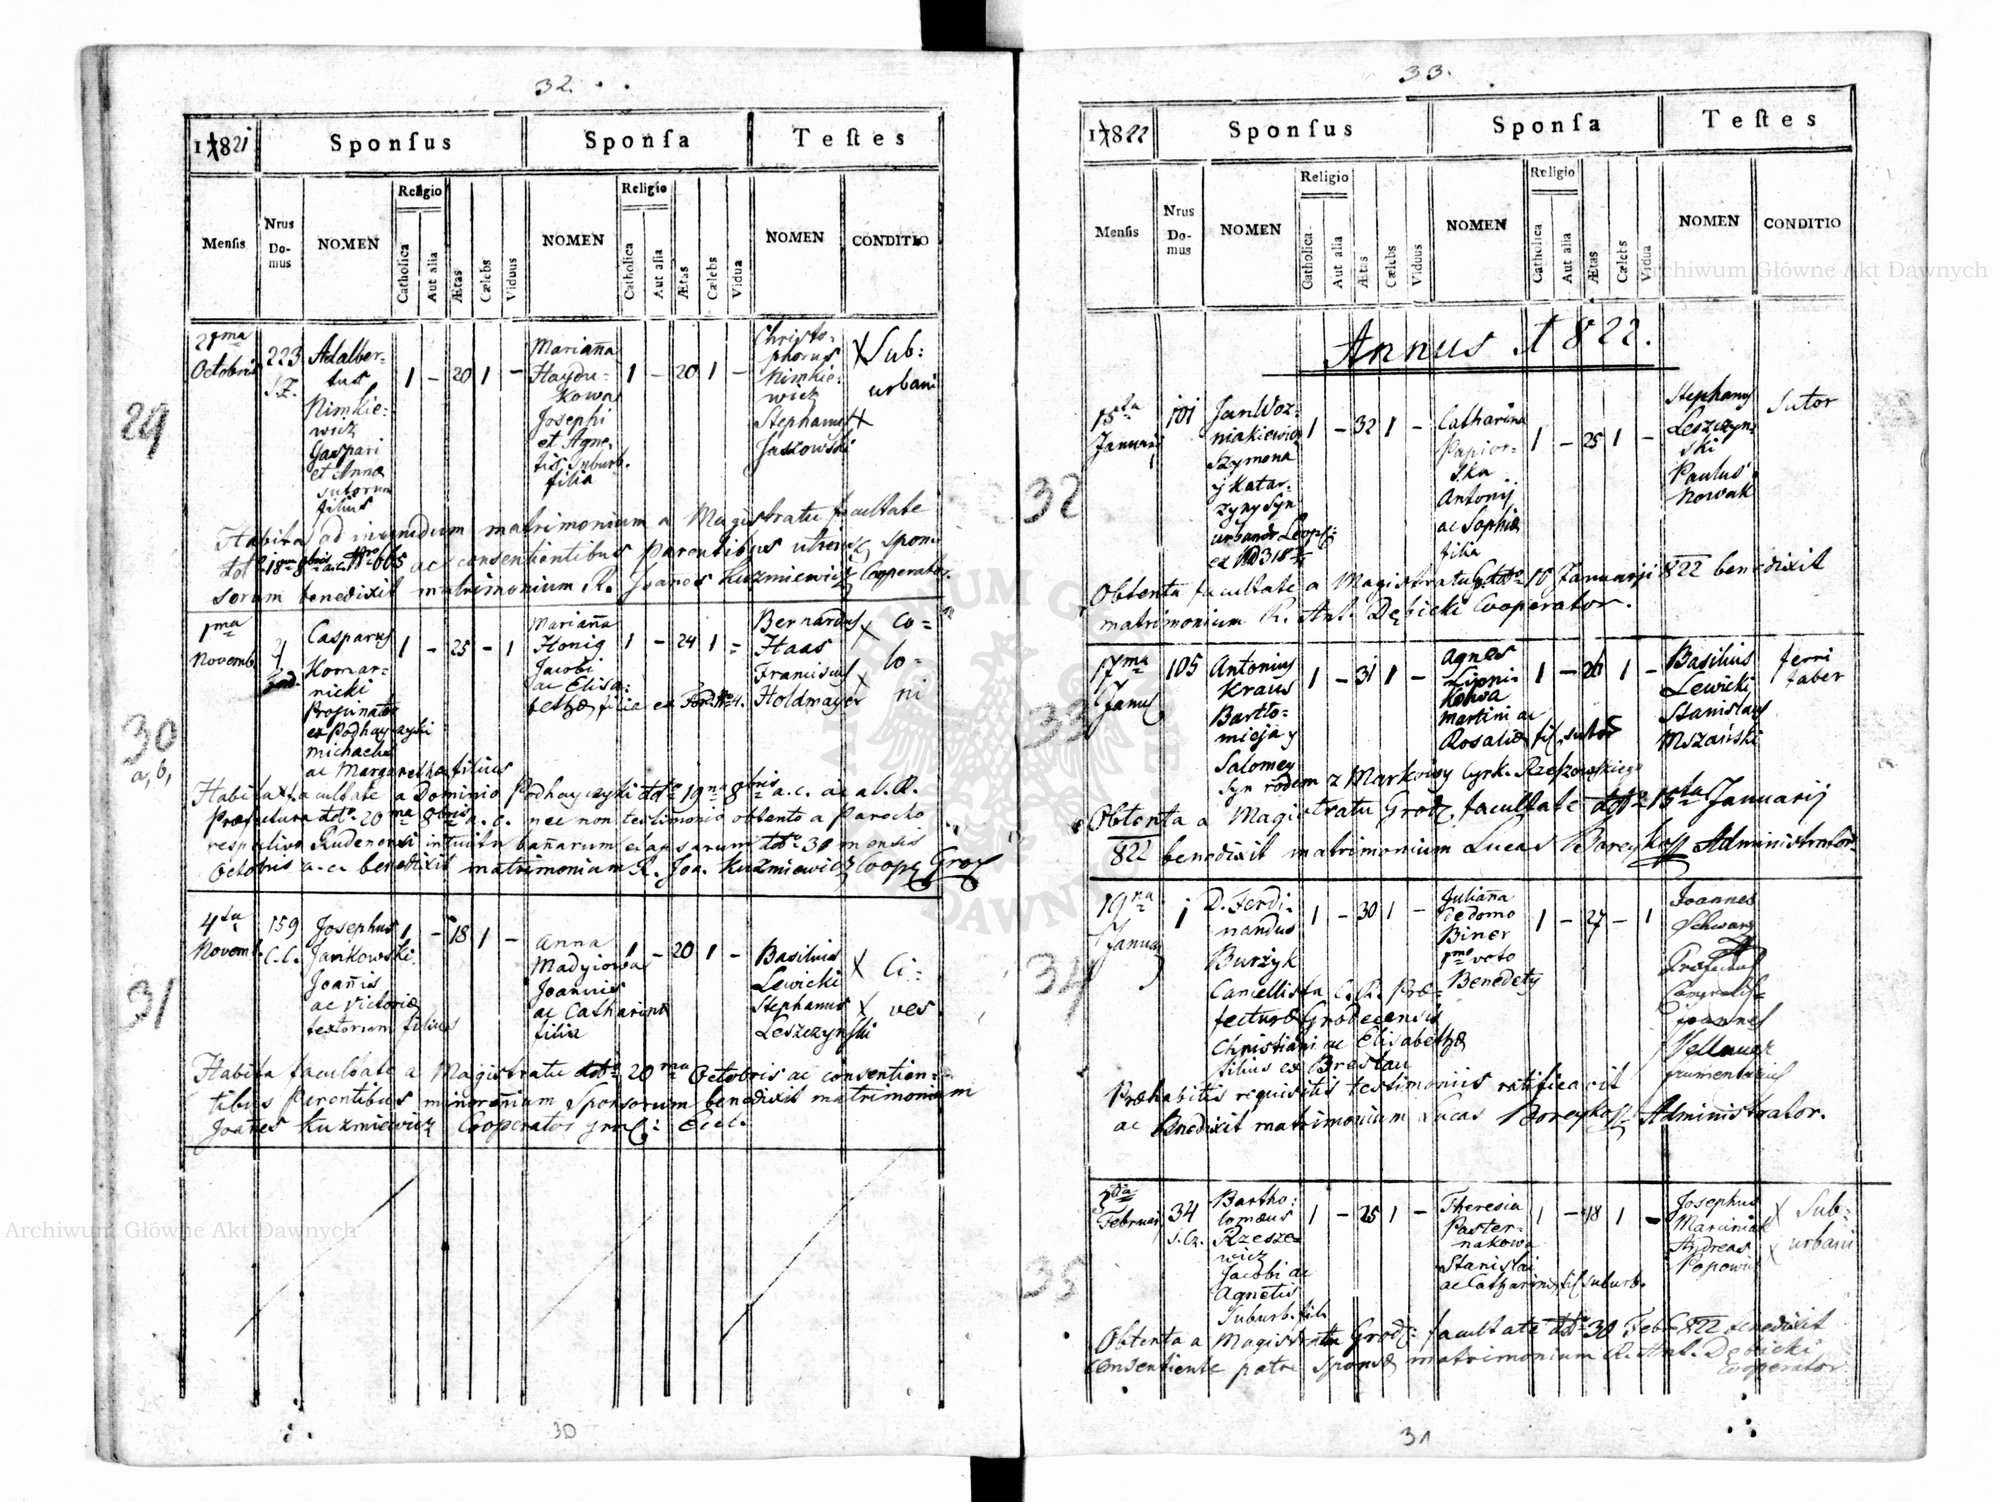 32.
1821
Sponſus
Sponſa
Teſtes
Menſis
Nrus Do-mus
NOMEN
Religio
Catholica
Aut alia
Ætas
Cælebs
Viduus
NOMEN
Religio
Catholica
Aut alia
Ætas
Cælebs
Vidua
NOMEN
CONDITIO
29
Octobris
223
Adalber-
tus
Nimkie-
wicz
Gaspari
et Annæ
sutorum
filius
1 - 20 1 -
Marianna
Haydu-
kowna
Josephi
et Agne-
tis suburb.
filia
1 - 20 1 -
Christo-
phorus
Nimkie-
wicz
Stephanus
Jaszowski
Sub-
urbani
Habita ad ineundum matrimonium a Magistratu facultate
ac consentientibus Parentibus
sorum benedixit matrimonium R. Joanes Kuzmiewicz Cooperator.
30
a, b,
1ma
Novemb.
4
Casparus
Komar-
nicki
Propinator
ex Podhayczyki
Michaelis
ac Margarethæ filius
1 - 25 - 1
Marianna
Honig
Jacobi
ac Elisa-
bethæ filia ex
1 - 24 1 -
Bernardus
Haas
Franciscus
Holdmayer
Co-
lo-
ni
Habita facultate a Dominio Podhayczyki ddto 19na 8bris a.c. ac a C.R.
Præfectura ddto 20ma 8bris a.c. nec non testimonio obtento a Parocho
respectivo Rudenensi intuitu bañarum elapsarum ddto 30 mensis
Octobris a.c. benedixit matrimonium R. Joa. Kuzmiewicz Coop. Grod
31
4ta
Novemb.
159
C.C.
Josephus
Jankowski
Joañis
ac Victoriæ
textorum filius
1 - 18 1 -
Anna
Madyiowa
Joannis
ac Catharinæ
filia
1 - 20 1 -
Basilius
Lewicki
Stephanus
Leszczynski
Ci-
ves
Habita facultate a Magistratu ddto 20ma Octobris ac consentien-
tibus Parentibus minorenium Sponsorum benedixit matrimonium
Joañes Kuzmiewicz Cooperator
30
33.
1822
Sponſus
Sponſa
Teſtes
Menſis
Nrus Do-mus
NOMEN
Religio
Catholica
Aut alia
Ætas
Cælebs
Viduus
NOMEN
Religio
Catholica
Aut alia
Ætas
Cælebs
Vidua
NOMEN
CONDITIO
Annus 1822.
32
15ta
Januarij
101
Jan Woz-
niakiewicz
Szymona
y Katar-
zyny Syn
1 - 32 1 -
Catharina
Papior-
ska
Antonij
ac Sophiæ
filia
1 - 25 1 -
Stephany
Leszczyn-
ski
Paulus
Nowak
Sutor
Obtenta facultate a Magistratu ddto 10 Januarij 822 benedixit
matrimonium R. Ant. Dębicki Cooperator.
33
17ma
105
Antonius
Kraus
Bartło-
mieja y
Salomey
Syn rodem z Markowy Cyrk. Rzeszowskiego
1 - 31 1 -
Agnes
Martini ac
Rosaliæ
1 - 26 1 -
Basilius
Lewicki
Stanislaus
Mszański
ferri
faber
Obtenta a Magistratu Grod. facultate ddto 15ta Januarij
822 benedixit matrimonium Lucas Administrator.
34
19na
1
D. Ferdi-
nandus
Burzyk
Cancellista C.R. Præ-
fecturæ Grodecensis
Christiani ac Elisabethæ
filius ex Breslau
1 - 30 1 -
Juliana
de domo
Biner
1mo voto
Benedety
1 - 27 - 1
Joannes
Schwarz
Joannes
frumentarius
Præhabitis requisitis testimoniis ratificavit
ac Benedixit matrimonium Lucas Administrator.
35
Februarij
34
Bartho-
lomæus
Rzesze-
wicz
Jacobi ac
Agnetis
Suburb. fili
1 - 25 1 -
Theresia
Paster-
nakowa
Stanislai
ac Catharinæ fil. suburb.
1 - 18 1 -
Josephus
Marciniak
Andreas
Popowicz
Sub-
urbani
Obtenta a Magistratu Grod. facultate ddto 30 Feb. 822 benedixit
consentiente patre sponsæ matrimonium R. Ant. Dębicki
Cooperator
31
Archiwum Główne Akt Dawnych
Archiwum Główne Akt Dawnych
ARCHIWUM GŁÓWNE AKT DAWNYCH